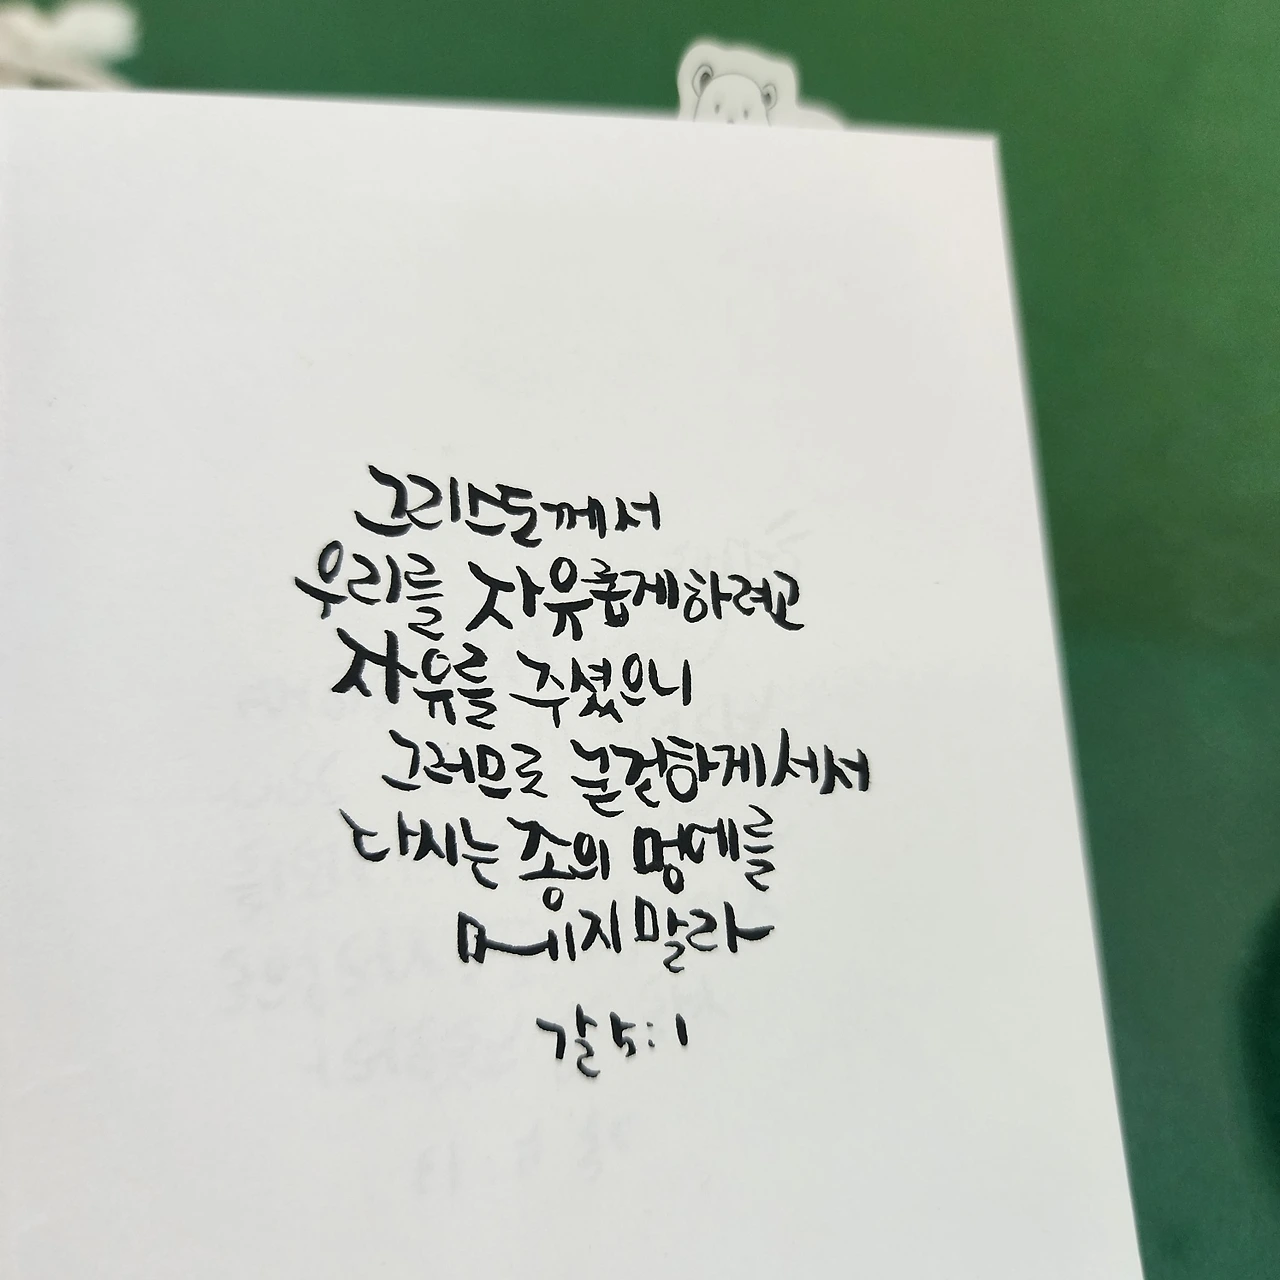 그리스도께서
우리를 자유롭게 하려고
자유를 주셨으니
그러므로 굳건하게 서서
다시는 종의 멍에를
메지 말라
갈 5:1